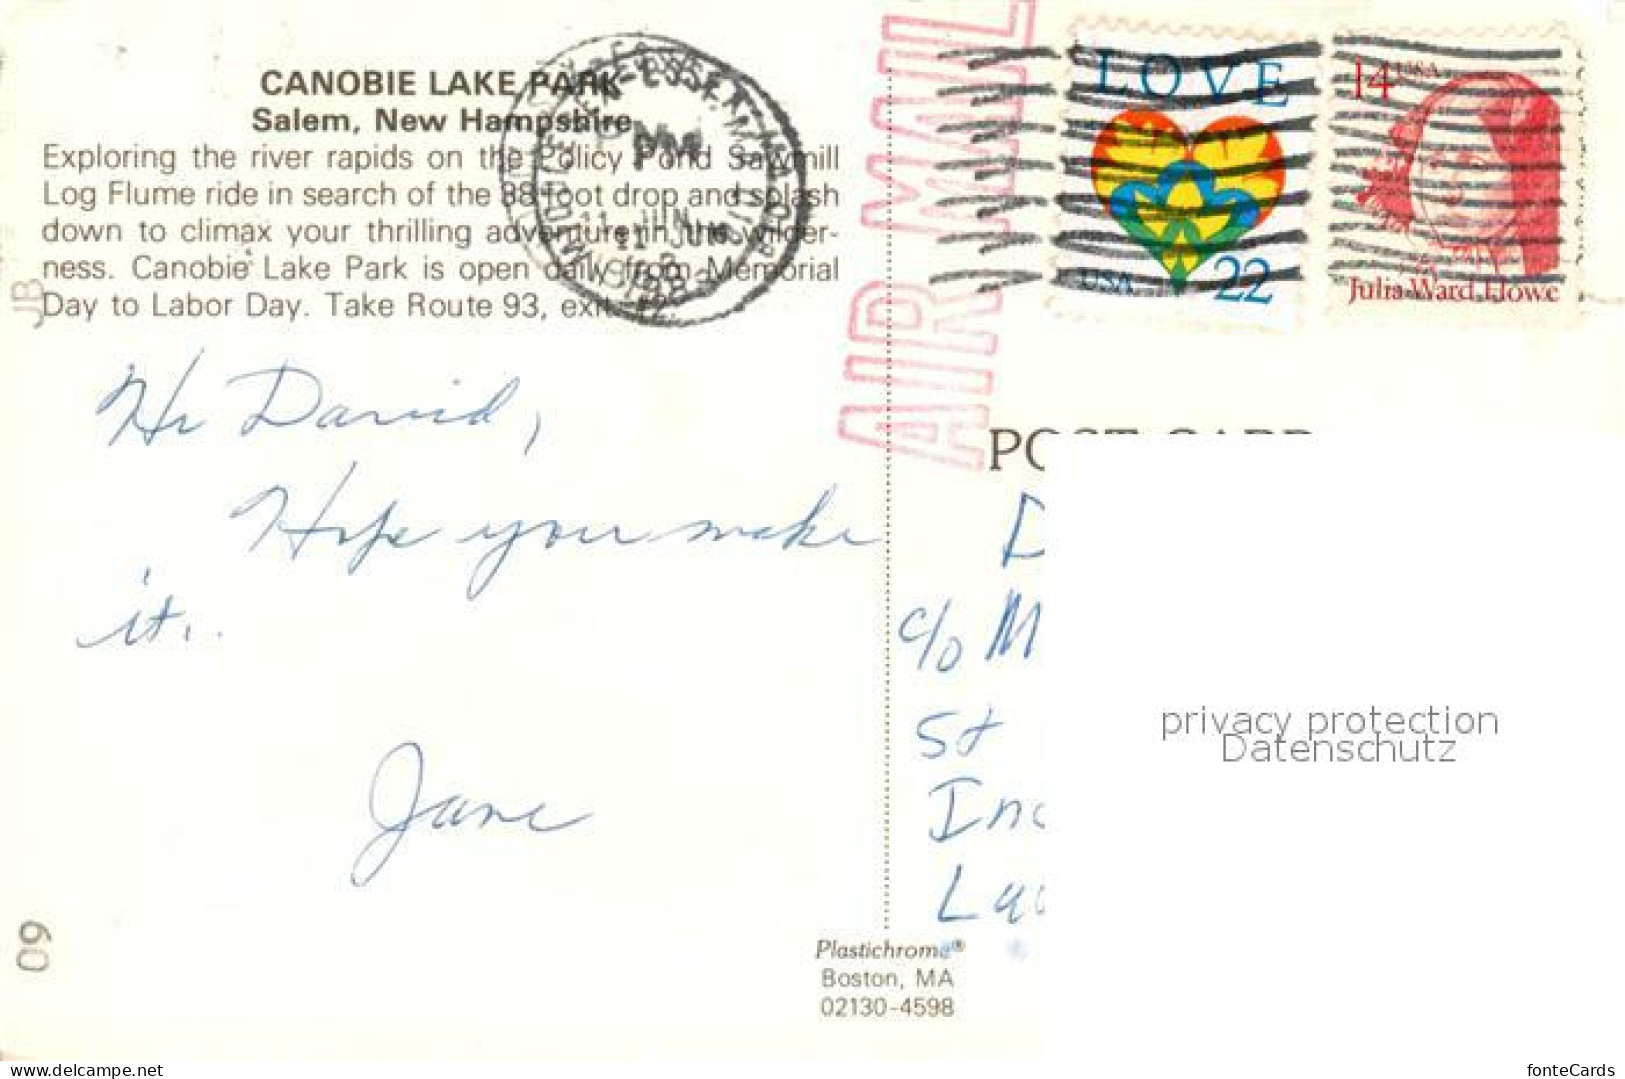 CANOBIE LAKE PARK
Salem, New Hampshire
Exploring the river rapids on the Policy Pond Sawmill
Log Flume ride in search of the 38 foot drop and splash
down to climax your thrilling adventure in this wilder-
ness. Canobie Lake Park is open daily from Memorial
Day to Labor Day. Take Route 93, exit 2.
JB
Hi David,
Hope you make
it..
Jane
09
PM
11 JUN
AIR MAIL
LOVE
USA 22
14 USA
Julia Ward Howe
POST CARD
D
c/o M
St
In
La
Plastichrome®
Boston, MA
02130-4598
privacy protection
Datenschutz
www.delcampe.net
fonteCards